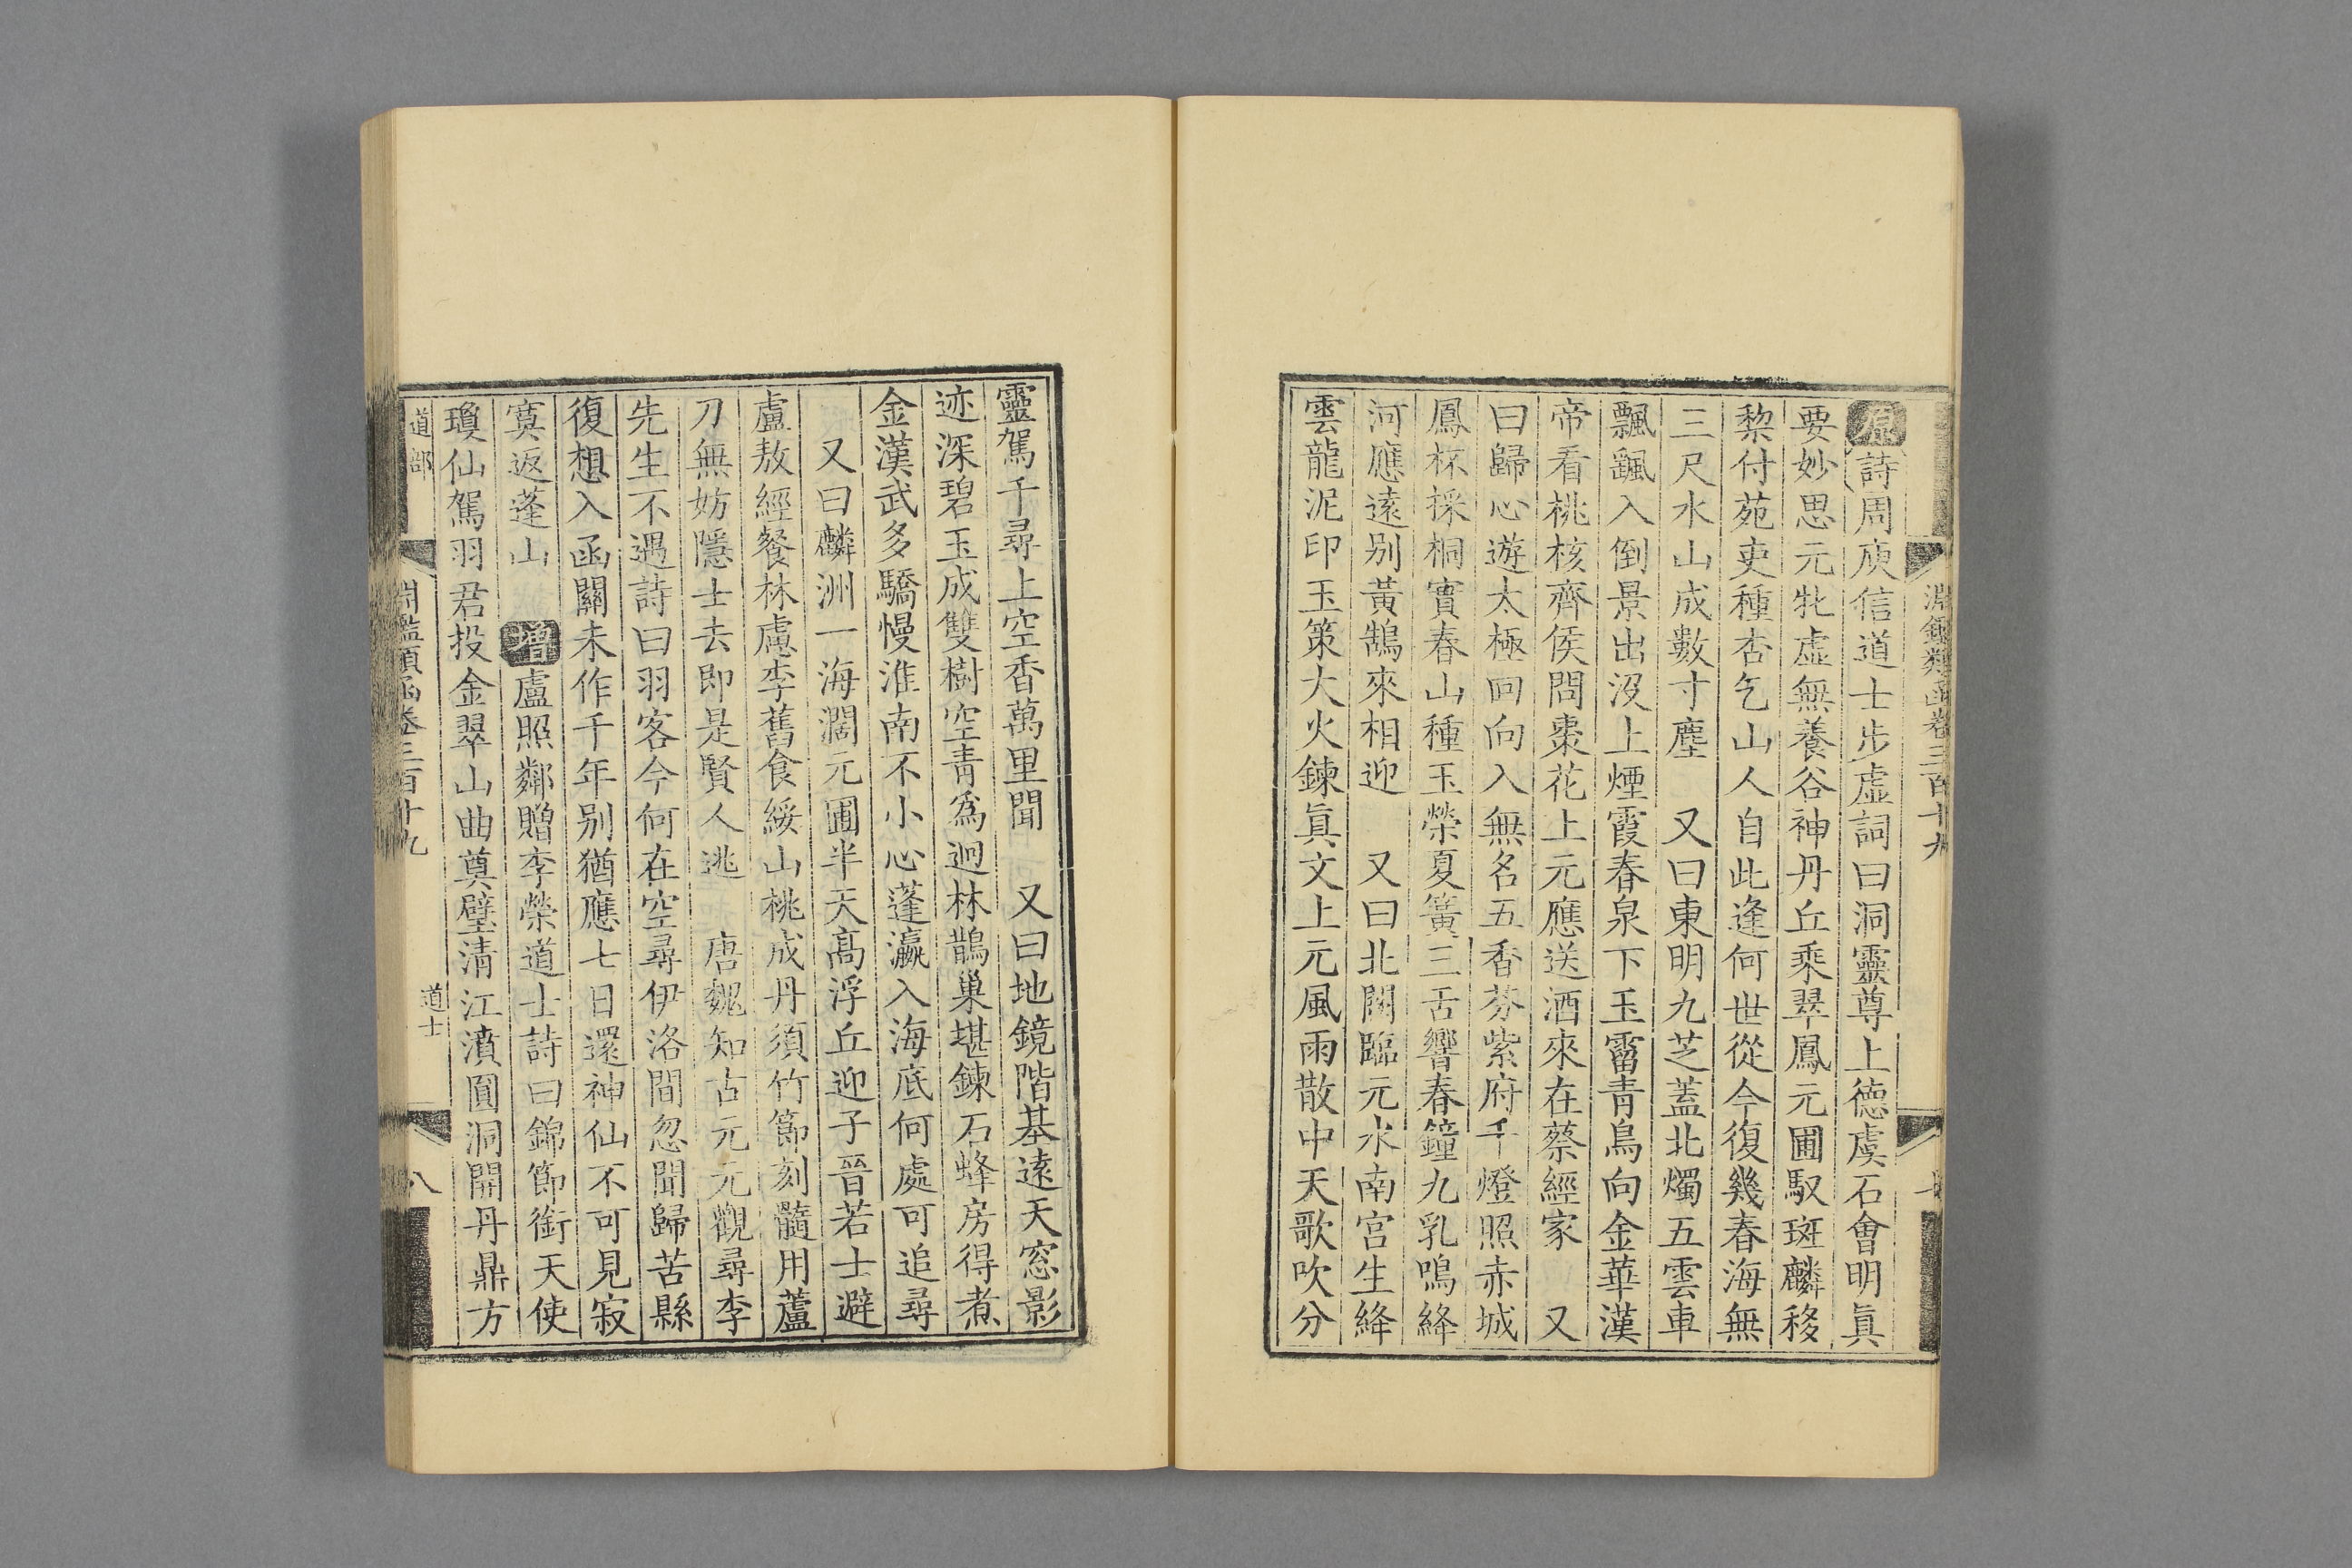 淵鑑類函卷三百十九
原詩周庾信道士步虛詞曰洞靈尊上德虞石會明眞
要妙思元牝虛無養谷神丹丘乘翠鳳元圃馭斑麟移
棃付苑吏種杏乞山人自此逢何世從今復幾春海無
三尺水山成數寸塵 又曰東明九芝蓋北燭五雲車
飄飖入倒景出沒上煙霞春泉下玉霤青鳥向金華漢
帝看桃核齊侯問棗花上元應送酒來在蔡經家 又
曰歸心遊太極回向入無名五香芬紫府千燈照赤城
鳳杯採桐實春山種玉榮夏簧三舌響春鐘九乳鳴絳
河應遠別黃鵠來相迎 又曰北閣臨元水南宮生絳
雲龍泥印玉策大火鍊眞文上元風雨散中天歌吹分
靈駕千尋上空香萬里聞 又曰地鏡階基遠天窓影
迹深碧玉成雙樹空青爲迥林鵲巢堪鍊石蜂房得煮
金漢武多驕慢淮南不小心蓬瀛入海底何處可追尋
又曰麟洲一海濶元圃半天高浮丘迎子晉若士避
盧敖經餐林慮李舊食綏山桃成丹須竹節刻髓用蘆
刀無妨隱士去即是賢人逃 唐魏知古元元觀尋李
先生不遇詩曰羽客今何在空尋伊洛間忽聞歸苦縣
復想入函關未作千年別猶應七日還神仙不可見寂
寞返蓬山 增盧照鄰贈李榮道士詩曰錦節銜天使
瓊仙駕羽君投金翠山曲奠璧清江濆圓洞開丹鼎方
道部 淵鑑類函卷三百十九 道士 八